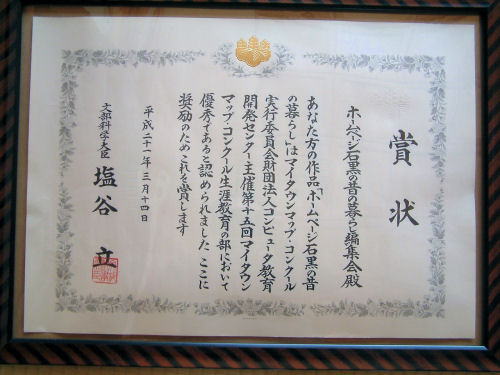 賞状
ホームページ石黒の昔の暮らし編集会殿
あなた方の作品「ホームページ石黒の昔
の暮らし」はマイタウンマップ・コンクール
実行委員会財団法人コンピュータ教育
開発センター主催第十五回マイタウン
マップ・コンクール生涯教育の部において
優秀であると認められました ここに
奨励のためこれを賞します
平成二十一年三月十四日
文部科学大臣 塩谷 立